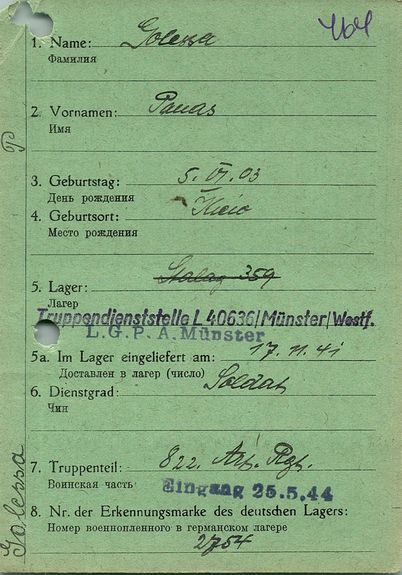 464
1. Name: Golessa
Фамилия
2. Vornamen: Panas
Имя
3. Geburtstag: 5. VI. 03
День рождения
4. Geburtsort: Kiew
Место рождения
5. Lager: Stalag 359
Лагерь
Truppendienststelle L 40636/Münster/Westf.
L.G.P.A. Münster
5a. Im Lager eingeliefert am: 17. 11. 41
Доставлен в лагерь (число)
6. Dienstgrad: Soldat
Чин
7. Truppenteil: 822. Art. Rgt.
Воинская часть
Eingang 25.5.44
8. Nr. der Erkennungsmarke des deutschen Lagers:
Номер военнопленного в германском лагере
2754
P
Golessa